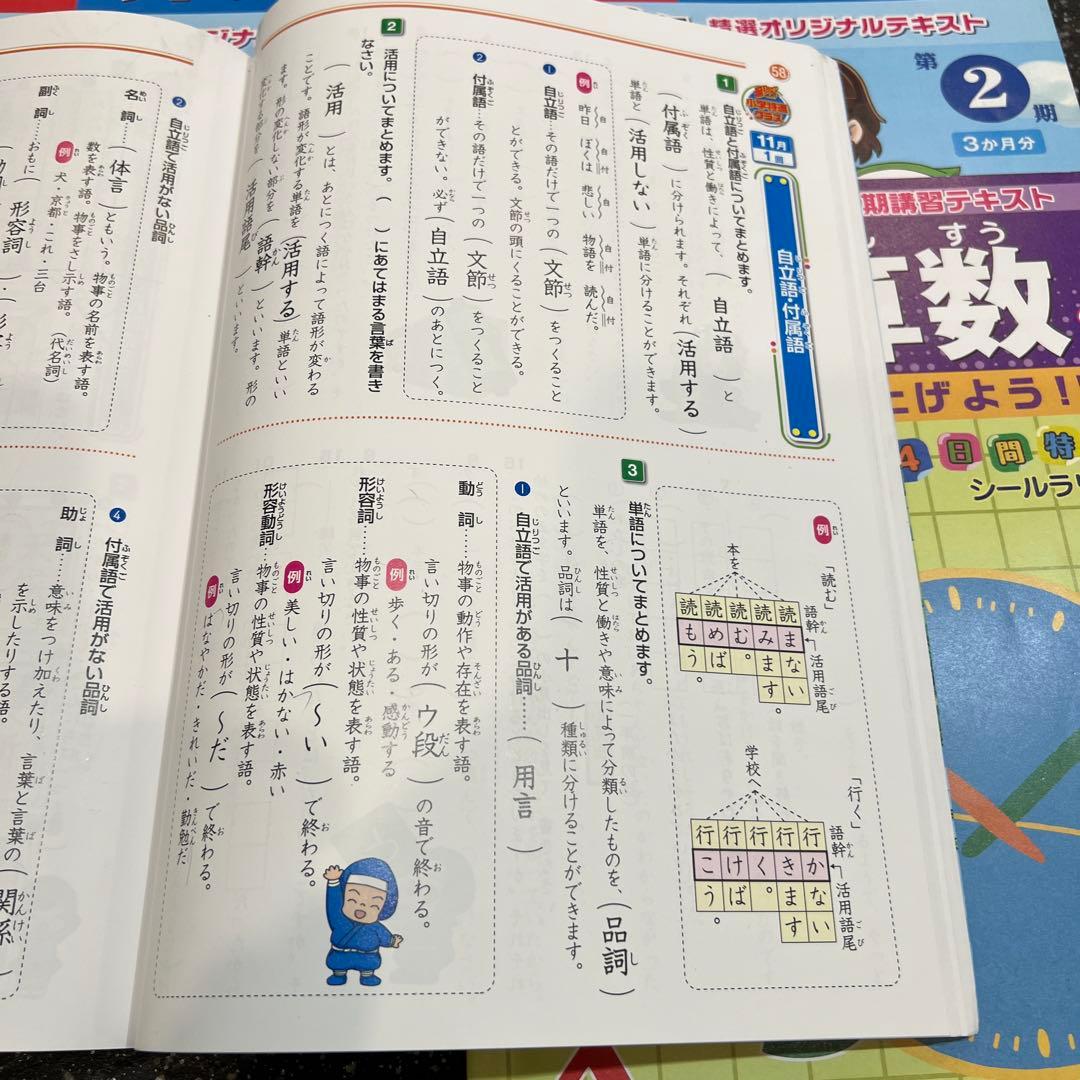 58
小学特進クラス
11月
1回
自立語・付属語
1 自立語と付属語についてまとめます。
単語は、性質と働きによって、（ 自立語 ）と
（ 付属語 ）に分けられます。それぞれ（活用する）
単語と（活用しない）単語に分けることができます。
例 昨日 ぼくは 悲しい 物語を 読んだ。
自 自付 自 自付 自付
❶ 自立語…その語だけで一つの（文節）をつくること
とができる。文節の頭にくることができる。
❷ 付属語…その語だけで一つの（文節）をつくること
ができない。必ず（自立語）のあとにつく。
2 活用についてまとめます。（ ）にあてはまる言葉を書き
なさい。
（ 活用 ）とは、あとにつく語によって語形が変わる
ことです。語形が変化する単語を（活用する）単語といい
ます。形の変化しない部分を（語幹）といいます。形の
変化する部分を（活用語尾）といいます。
例
「読む」
語幹 活用語尾
本を
読まない
読みます。
読む。
読めば
読もう。
「行く」
語幹 活用語尾
学校へ
行かない
行きます
行く。
行けば
行こう。
3 単語についてまとめます。
単語を、性質と働きや意味によって分類したものを、（品詞）
といいます。品詞は（ 十 ）種類に分けることができます。
❶ 自立語で活用がある品詞……（ 用言 ）
動詞……物事の動作や存在を表す語。
言い切りの形が（ウ段）の音で終わる。
例 歩く・ある・感動する
形容詞……物事の性質や状態を表す語。
言い切りの形が（〜い）で終わる。
例 美しい・はかない・赤い
形容動詞……物事の性質や状態を表す語。
言い切りの形が（〜だ）で終わる。
例 はなやかだ・きれいだ・勤勉だ
❷ 自立語で活用がない品詞
名詞……（体言）ともいう。物事の名前を表す語。
数を表す語。物事をさし示す語。（代名詞）
例 犬・京都・これ・三台
副詞……おもに（形容詞）
❹ 付属語で活用がない品詞
助詞……意味をつけ加えたり、言葉と言葉の（関係）
を示したりする語。
精選オリジナルテキスト
第2期
3か月分
期講習テキスト
すう
算数
上げよう!!
4日間特
シールラリ